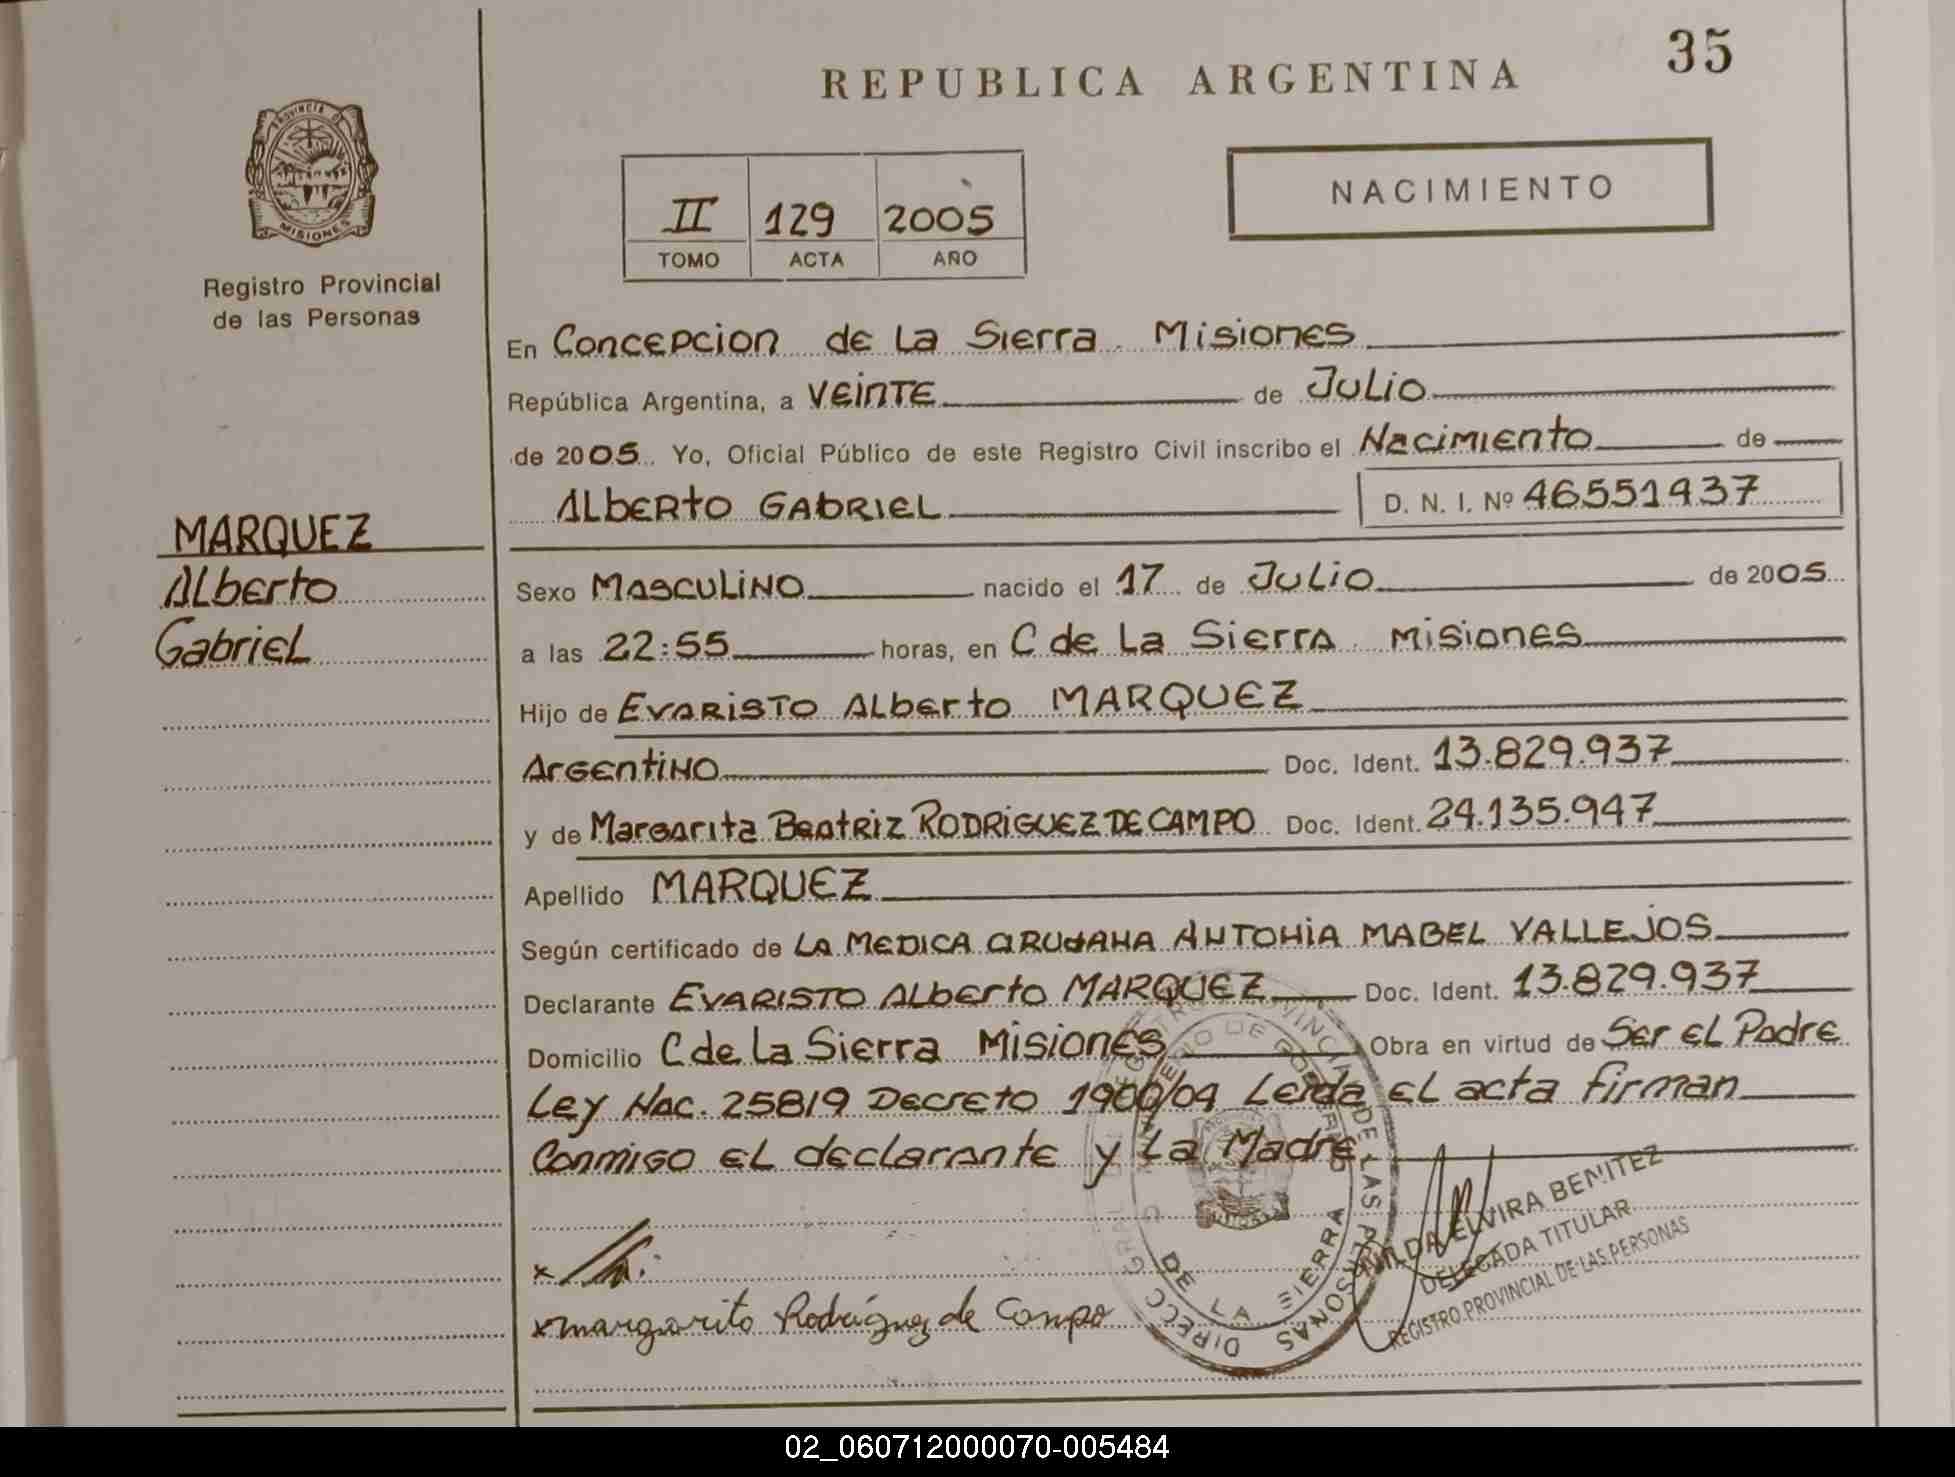 35
REPUBLICA ARGENTINA
PROVINCIA DE
MISIONES
Registro Provincial
de las Personas
NACIMIENTO
II 129 2005
TOMO ACTA AÑO
En Concepcion de La Sierra. Misiones
República Argentina, a Veinte de Julio
de 2005. Yo, Oficial Público de este Registro Civil inscribo el Nacimiento de
Alberto Gabriel D. N. I. Nº 46551937
MARQUEZ
Alberto
Gabriel
Sexo Masculino nacido el 17 de Julio de 2005
a las 22:55 horas, en C de La Sierra. Misiones
Hijo de Evaristo Alberto MARQUEZ
Argentino Doc. Ident. 13.829.937
y de Margarita Beatriz RODRIGUEZ DE CAMPO Doc. Ident. 24.135.947
Apellido MARQUEZ
Según certificado de LA MEDICA CIRUJANA ANTONIA MABEL VALLEJOS
Declarante Evaristo Alberto MARQUEZ Doc. Ident. 13.829.937
Domicilio C de La Sierra Misiones Obra en virtud de Ser el Padre
Ley Nac. 25819 Decreto 1900/04 Leida el acta firman
Conmigo el declarante y La Madre
DE LAS PERSONAS
DE LA SIERRA
ELVIRA BENITEZ
DELEGADA TITULAR
REGISTRO PROVINCIAL DE LAS PERSONAS
x
x margarita Rodríguez de Campo
02_060712000070-005484